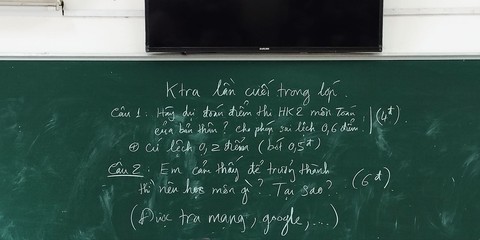 SAMSUNG
Ktra lần cuối trong lớp.
Câu 1: Hãy dự đoán điểm thi HK2 môn Toán
của bản thân? cho phép sai lệch 0,6 điểm. (4đ).
⊕ Cứ lệch 0,2 điểm (bớt 0,5đ)
Câu 2: Em cảm thấy để trưởng thành
thì nên học môn gì? Tại sao? (6đ)
(Được tra mạng, google,...)